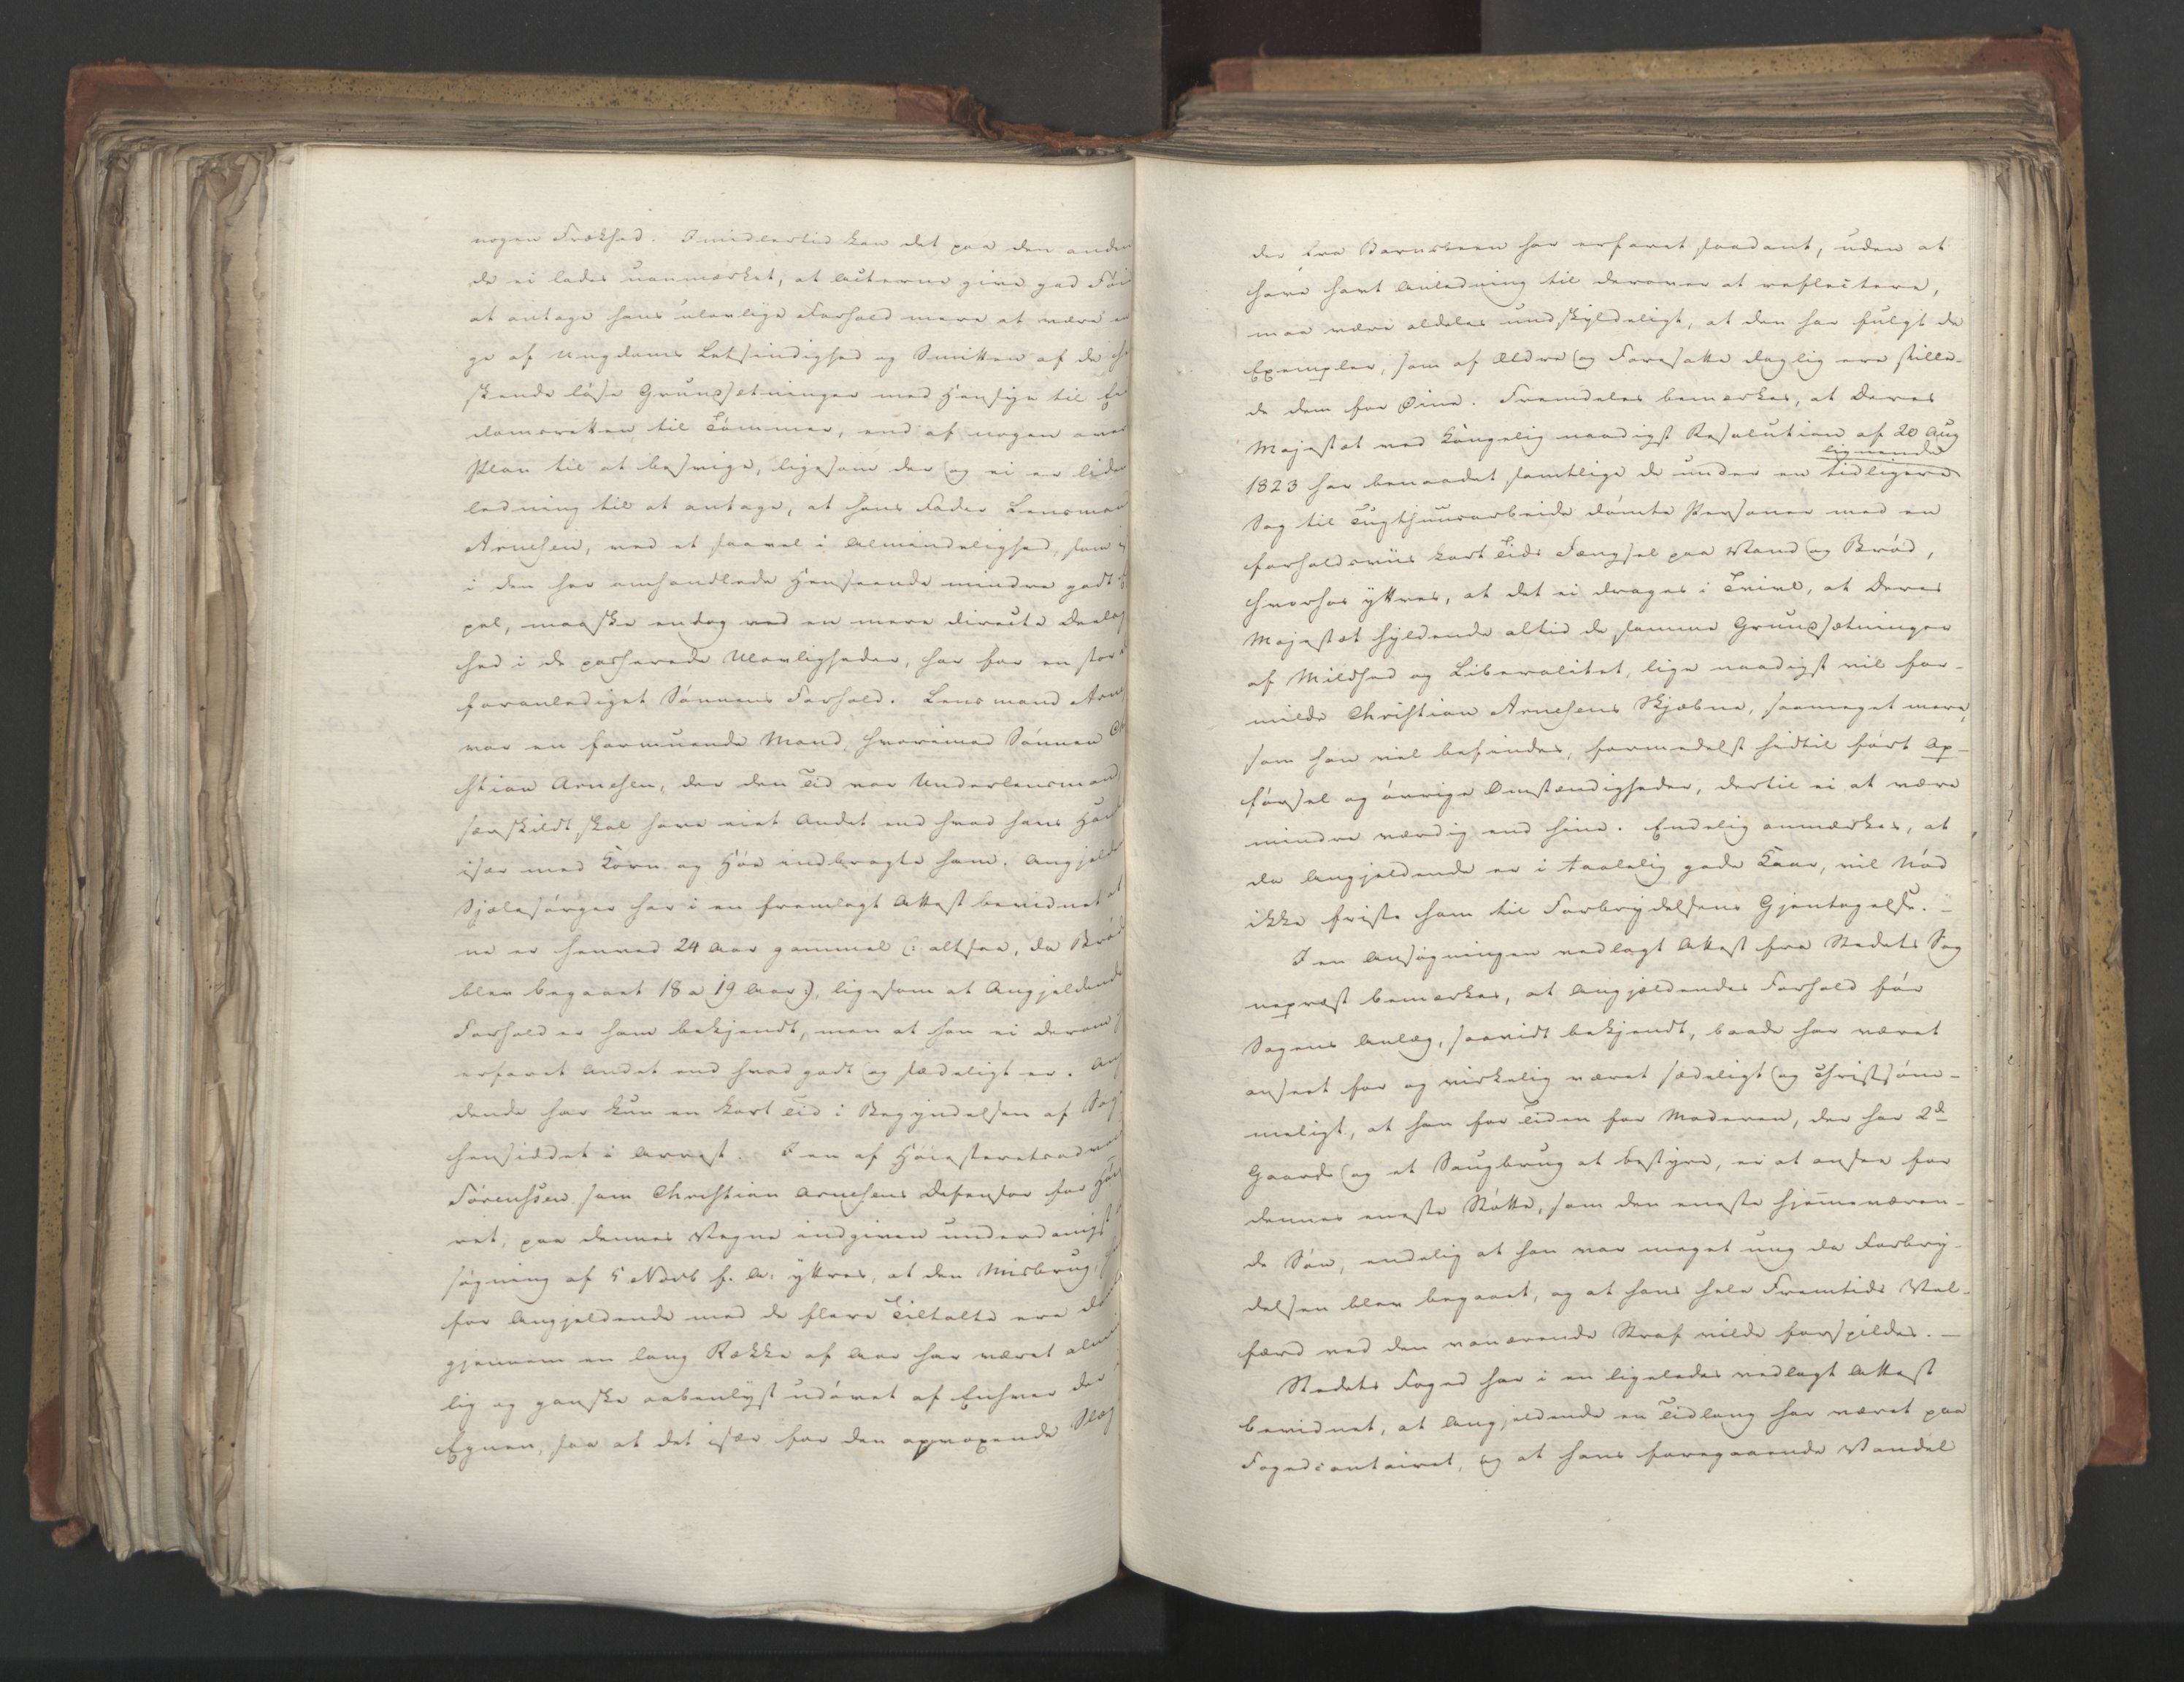 nogen Frækhed. Imidlertid kan det paa den anden
de ei lades uanmærket, at Acterne give god Föie
at antage hans ulovlige Forhold mere at være en
ge af Ungdoms Letsindighed og Smitten af de
skende löse Grundsetninger med Hensyn til
domsretten til Tömmer, end af nogen
Plan til at besvige, ligesom der og ei er liden
ledning til at antage, at hans Fader Lensmand
Arnesen, ved et saavel i Almindelighed, som
i den her omhandlede Henseende mindre godt
pel, maaske endog ved en mere directe
hed i de passerede Ulovligheder, har for en stor
foranlediget Sönnens Forhold. Lensmand
var en formuende Mand, hvorimod Sönnen
stian Arnesen, der den Tid var Underlensmand
særskildt skal have eiet Andet end hvad hans
især med Korn og Höe indbragte ham. Angjeldendes
Sjælesörger har i en fremlagt Attest bevidnet at
ne er henved 24 Aar gammel (: altsaa, da
blev begaaet 18 a 19 Aar:), ligesom at Angjeldendes
Forhold er ham bekjendt, men at han ei derom
erfaret Andet end hvad godt og sædeligt er.
dende har kun en kort Tid i Begyndelsen af
hensiddet i Arrest. I en af Höiesteretsadvocat
Sörenssen som Christian Arnesens Defensor for
ret, paa dennes Vegne indgiven underdanigst
sögning af 5 Novb f. A. yttres, at den Misbrug,
for Angjeldende med de flere Tiltalte ere
gjennem en lang Række af Aar har været
lig og ganske aabenlyst udövet af Enhver der i
Egnen, saa at det især for den opvoxende
der fra Barnsbeen har erfaret saadant, uden at
have havt Anledning til derover at reflectere,
maa være aldeles undskyldeligt, at den har fulgt de
Exempler, som af Ældre og Foresatte daglig ere stille-
de dem for Öine. Fremdeles bemærkes, at Deres
Majestæt ved Kongelig naadigst Resolution af 20 Aug
lignende
1823 har benaadet samtlige de under en tidligere
Sag til Tugthuusarbeide dömte Personer med en
forholdsviis kort Tids Fængsel paa Vand og Bröd,
hvorhos yttres, at det ei drages i Tvivl, at Deres
Majestæt hyldende altid de samme Grundsætninger
af Mildhed og Liberalitet, lige naadigst vil for-
milde Christian Arnesens Skjæbne, saameget mere,
som han vil befindes, formedelst hidtil fört Op-
försel og övrige Omstændigheder, dertil ei at være
mindre værdig end hine. Endelig anmærkes, at
da Angjeldende er i taalelig gode Kaar, vil Nöd
ikke friste ham til Forbrydelsens Gjentagelse. –
I en Ansögningen vedlagt Attest fra Stedets Sog
nepræst bemærkes, at Angjældendes Forhold för
Sagens Anlæg, saavidt bekjendt, baade har været
anseet for og virkelig været sædeligt og christsöm-
meligt, at han for Tiden for Moderen, der har 2de
Gaarde og et Saugbrug at bestyre, er at ansee for
dennes eneste Stötte, som den eneste hjemmeværen-
de Sön, endelig at han var meget ung da Forbry-
delsen blev begaaet, og at hans hele Fremtids Vel-
færd ved den vanærende Straf vilde forspildes. –
Stedets Foged har i en ligeledes vedlagt Attest
bevidnet, at Angjeldende en Tidlang har været paa
Fogedcontoiret, og at hans foregaaende Vandel